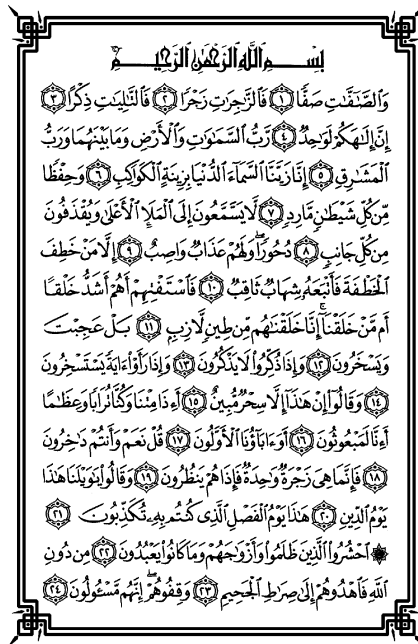 بِسْمِ اللَّهِ الرَّحْمَٰنِ الرَّحِيمِ
وَالصَّافَّاتِ صَفًّا ١ فَالزَّاجِرَاتِ زَجْرًا ٢ فَالتَّالِيَاتِ ذِكْرًا ٣
إِنَّ إِلَٰهَكُمْ لَوَاحِدٌ ٤ رَّبُّ السَّمَاوَاتِ وَالْأَرْضِ وَمَا بَيْنَهُمَا وَرَبُّ
الْمَشَارِقِ ٥ إِنَّا زَيَّنَّا السَّمَاءَ الدُّنْيَا بِزِينَةٍ الْكَوَاكِبِ ٦ وَحِفْظًا
مِّن كُلِّ شَيْطَانٍ مَّارِدٍ ٧ لَّا يَسَّمَّعُونَ إِلَى الْمَلَإِ الْأَعْلَىٰ وَيُقْذَفُونَ
مِن كُلِّ جَانِبٍ ٨ دُحُورًا ۖ وَلَهُمْ عَذَابٌ وَاصِبٌ ٩ إِلَّا مَنْ خَطِفَ
الْخَطْفَةَ فَأَتْبَعَهُ شِهَابٌ ثَاقِبٌ ١٠ فَاسْتَفْتِهِمْ أَهُمْ أَشَدُّ خَلْقًا
أَم مَّنْ خَلَقْنَا ۚ إِنَّا خَلَقْنَاهُم مِّن طِينٍ لَّازِبٍ ١١ بَلْ عَجِبْتَ
وَيَسْخَرُونَ ١٢ وَإِذَا ذُكِّرُوا لَا يَذْكُرُونَ ١٣ وَإِذَا رَأَوْا آيَةً يَسْتَسْخِرُونَ
١٤ وَقَالُوا إِنْ هَٰذَا إِلَّا سِحْرٌ مُّبِينٌ ١٥ أَءِذَا مِتْنَا وَكُنَّا تُرَابًا وَعِظَامًا
أَءِنَّا لَمَبْعُوثُونَ ١٦ أَوَآبَاؤُنَا الْأَوَّلُونَ ١٧ قُلْ نَعَمْ وَأَنتُمْ دَاخِرُونَ
١٨ فَإِنَّمَا هِيَ زَجْرَةٌ وَاحِدَةٌ فَإِذَا هُمْ يَنظُرُونَ ١٩ وَقَالُوا يَا وَيْلَنَا هَٰذَا
يَوْمُ الدِّينِ ٢٠ هَٰذَا يَوْمُ الْفَصْلِ الَّذِي كُنتُم بِهِ تُكَذِّبُونَ ٢١
۞ احْشُرُوا الَّذِينَ ظَلَمُوا وَأَزْوَاجَهُمْ وَمَا كَانُوا يَعْبُدُونَ ٢٢ مِن دُونِ
اللَّهِ فَاهْدُوهُمْ إِلَىٰ صِرَاطِ الْجَحِيمِ ٢٣ وَقِفُوهُمْ ۖ إِنَّهُم مَّسْئُولُونَ ٢٤